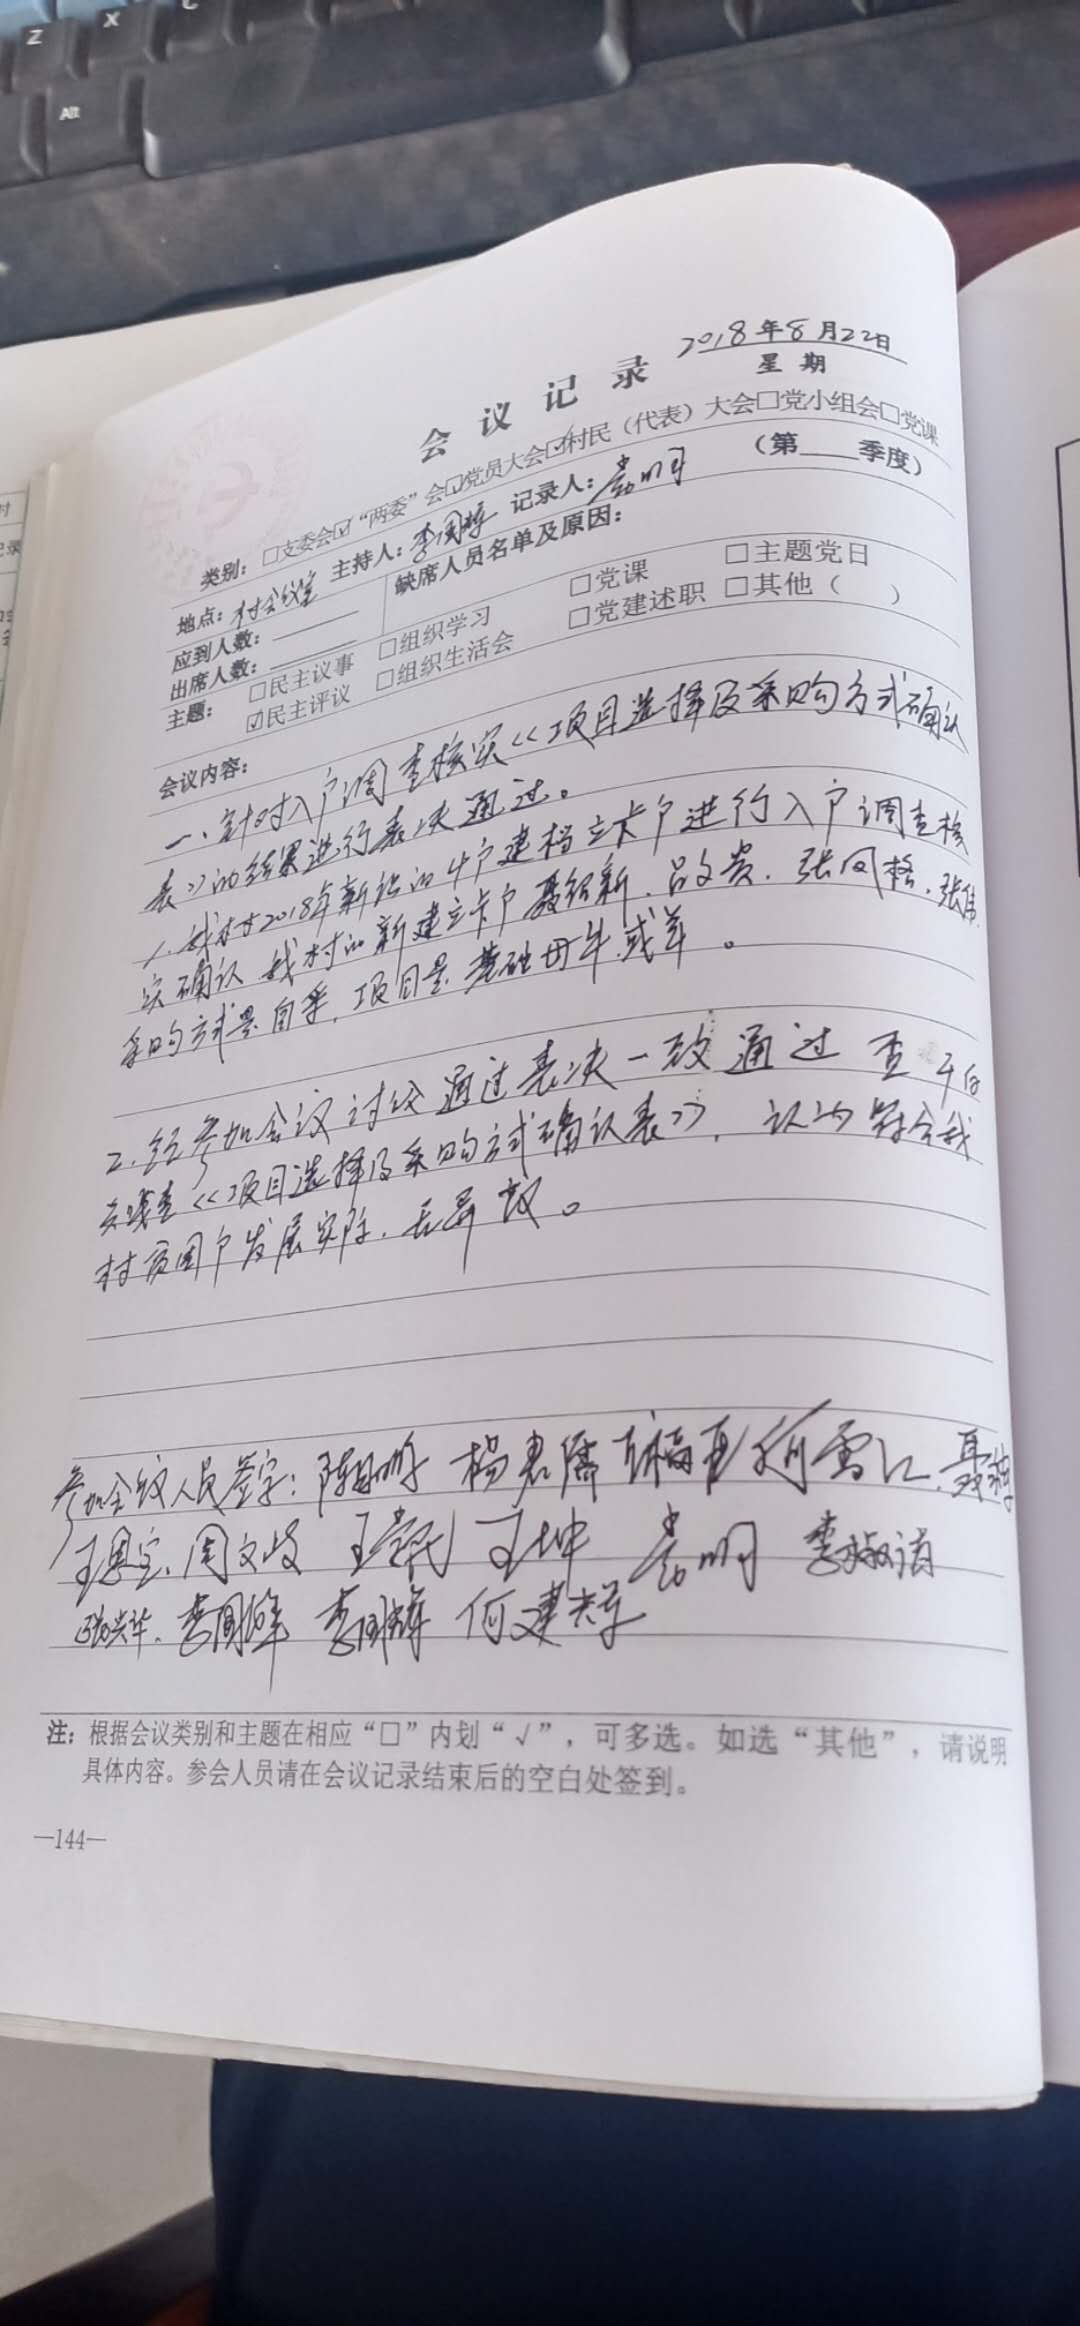 Z
X
C
Alt
2018年8月22日
会议记录
星 期
类别：□支委会☑“两委”会☑党员大会☑村民（代表）大会□党小组会□党课
（第____季度）
地点：村会议室 主持人：李国辉 记录人：
应到人数：
缺席人员名单及原因：
出席人数：
主题： □民主议事 □组织学习 □党课 □主题党日
☑民主评议 □组织生活会 □党建述职 □其他（ ）
会议内容：
一、针对入户调查核实《项目选择及采购方式确认
表》的结果进行表决通过。
1、我村对2018年新识的4户建档立卡户进行入户调查核
实确认 我村的新建立卡户聂绍新、吕文贵、张凤格、张伟
采购方式是自采，项目是基础母牛或羊。
2、经参加会议讨论通过表决一致通过
《项目选择及采购方式确认表》，认为符合我
村贫困户发展实际，无异议。
参加会议人员签字：
王恩宝、周文岐 王荣民 王坤
李国辉 何建
注：根据会议类别和主题在相应“□”内划“√”，可多选。如选“其他”，请说明
具体内容。参会人员请在会议记录结束后的空白处签到。
—144—